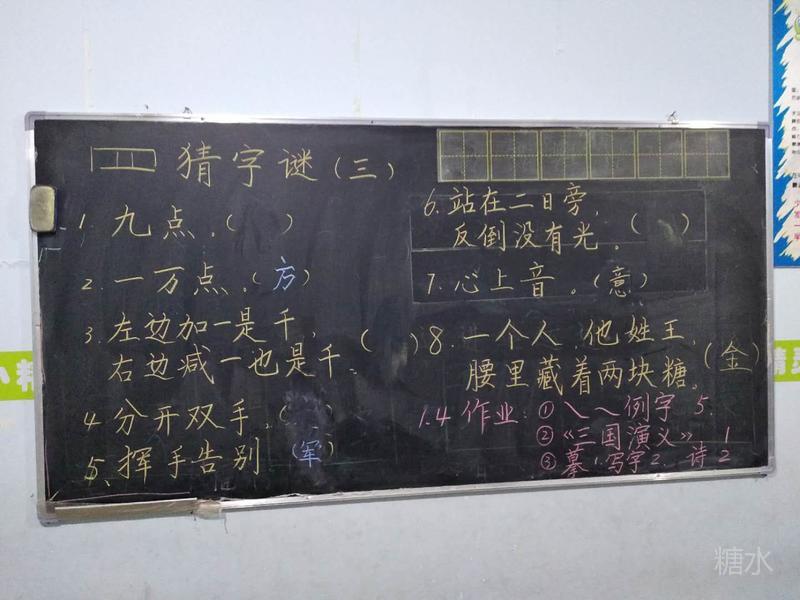 猜字谜（三）
1. 九点。（ ）
2. 一万点。（方）
3. 左边加一是千，
右边减一也是千。（ ）
4. 分开双手。（ ）
5. 挥手告别（军）
6. 站在二日旁，
反倒没有光。（ ）
7. 心上音。（意）
8. 一个人 他姓王，
腰里藏着两块糖。（金）
1.4 作业：①㇏㇏例字 5.
②《三国演义》 1
③摹1.写字2. 诗2
糖水